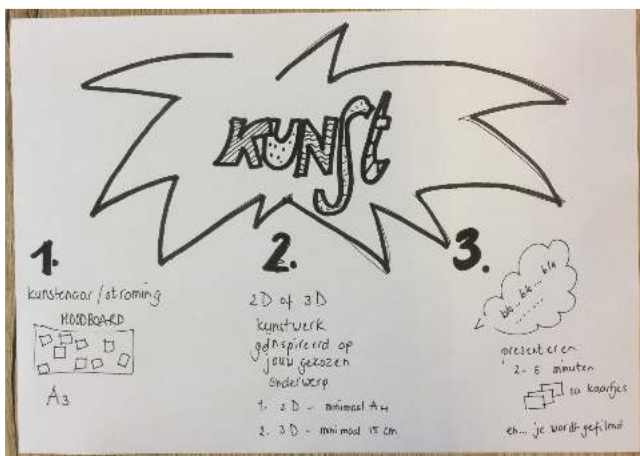 KUNST
1.
kunstenaar / stroming
MOODBOARD
A3
2.
2D of 3D
kunstwerk
geïnspireerd op
jouw gekozen
onderwerp
1. 2D - minimaal A4
2. 3D - minimaal 15 cm
3.
bla... bla... bla
.......
presenteren
2-5 minuten
10 kaartjes
en... je wordt gefilmd